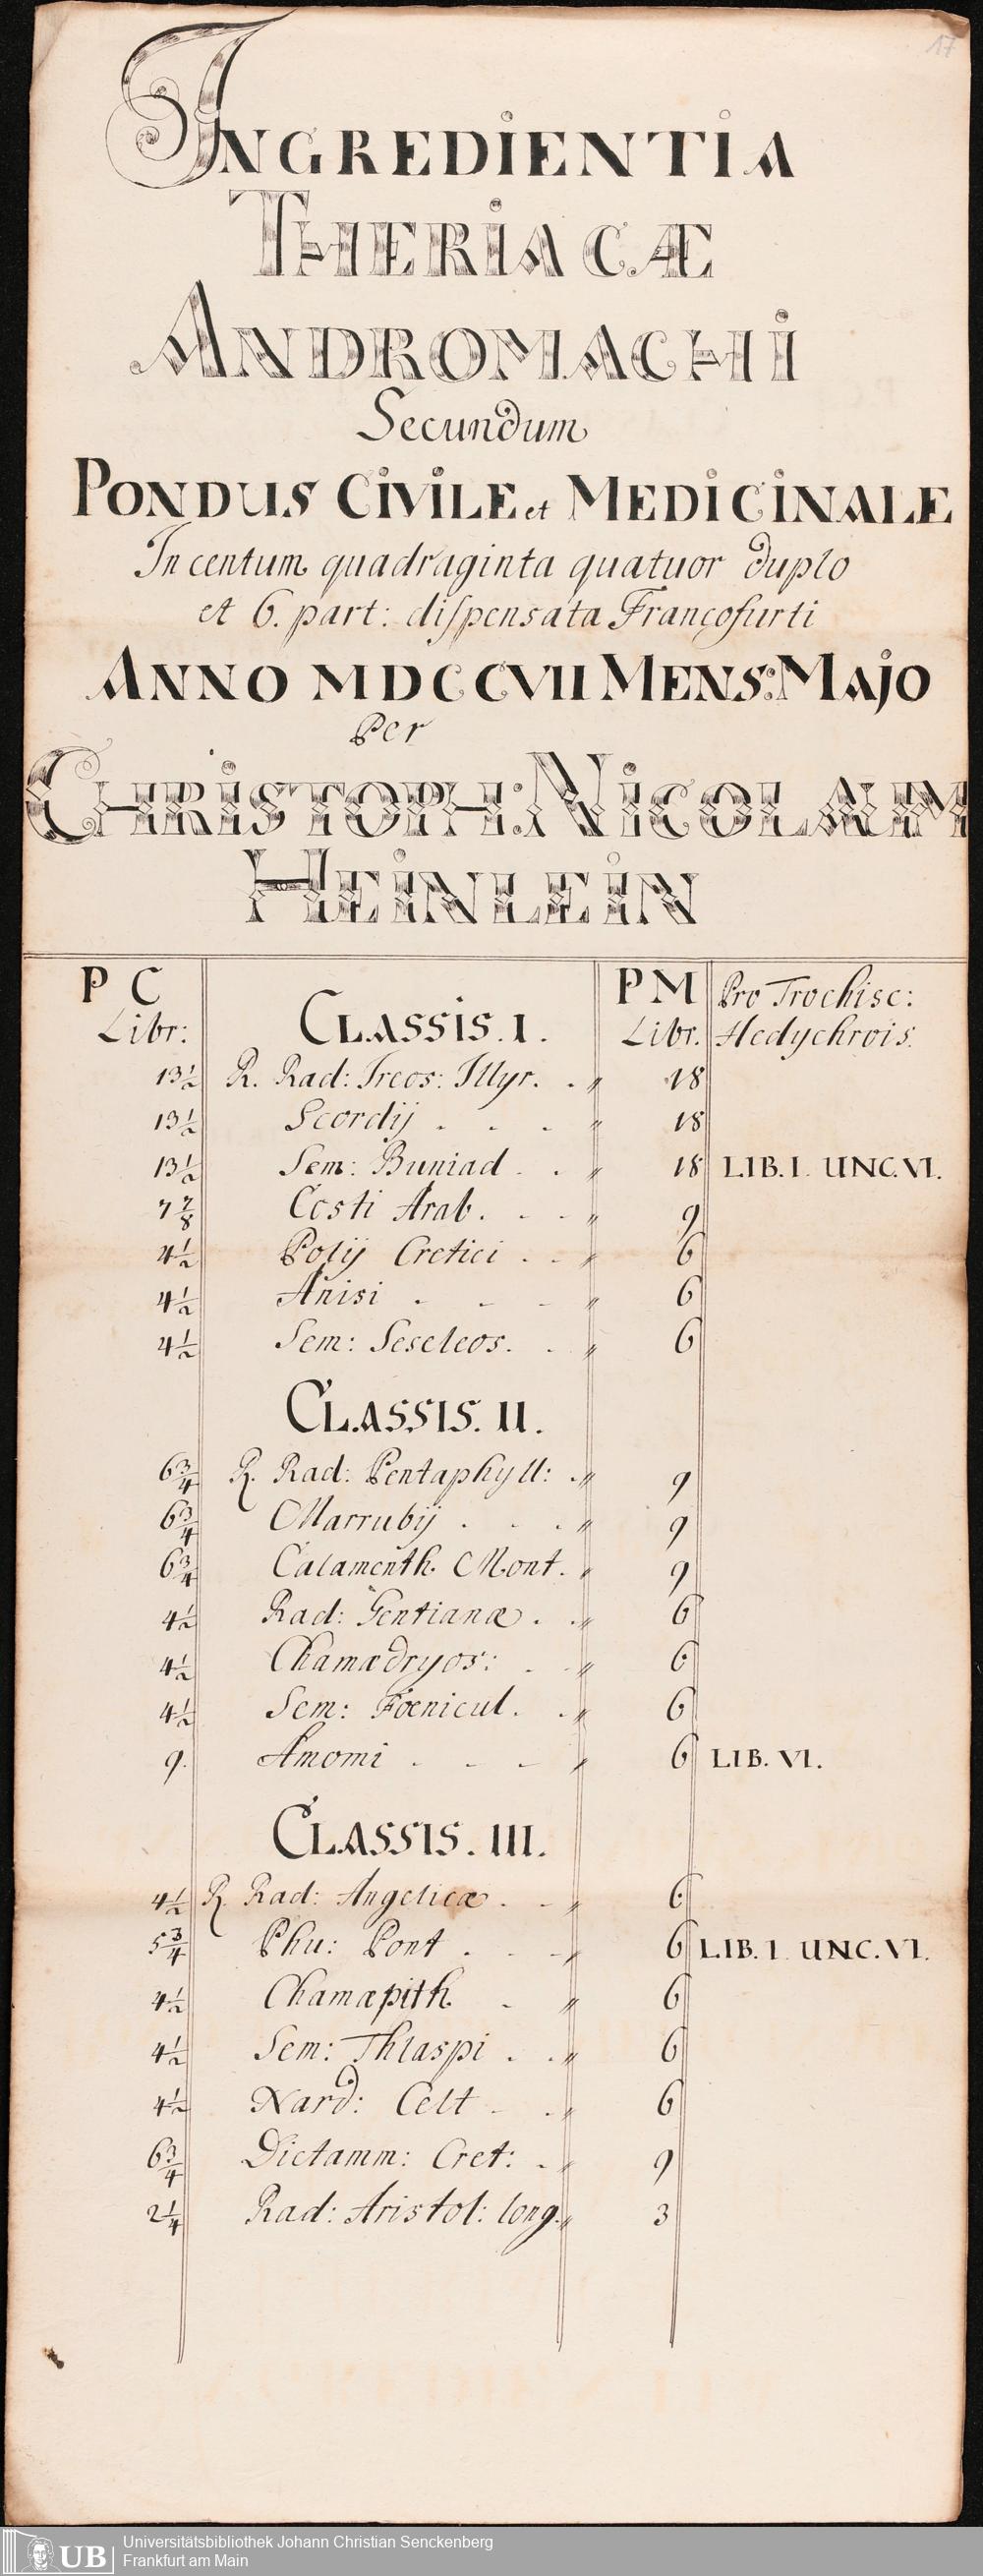 17
INGREDIENTIA
THERIACÆ
ANDROMACHI
Secundum
PONDUS CIVILE et MEDICINALE
In centum quadraginta quatuor duplo
et 6. part: dispensata Francofurti
ANNO MDCCVII MENS: MAJO
Per
CHRISTOPH: NICOLAUM
HEINLEIN
P C P M Pro Trochisc:
Libr: CLASSIS. I. Libr. Hedychrois.
13½ R. Rad: Ireos: Illyr. . 〃 18
13½ Scordij . . . 〃 18
13½ Sem: Buniad . . 〃 18 LIB. I. UNC. VI.
7⅞ Costi Arab. . . 〃 9
4½ Polij Cretici . . 〃 6
4½ Anisi . . . 〃 6
4½ Sem: Seseleos. . 〃 6
CLASSIS. II.
6¾ R. Rad: Pentaphyll: . 〃 9
6¾ Marrubij . . . 〃 9
6¾ Calamenth. Mont. 〃 9
4½ Rad: Gentianæ . . 〃 6
4½ Chamædryos: . . 〃 6
4½ Sem: Fœnicul. . 〃 6
9. Amomi . . . 〃 6 LIB. VI.
CLASSIS. III.
4½ R. Rad: Angelicæ . . 〃 6
5¾ Phu: Pont . . . 〃 6 LIB. I. UNC. VI.
4½ Chamæpith. . 〃 6
4½ Sem: Thlaspi . . 〃 6
4½ Nard: Celt . . 〃 6
6¾ Dictamm: Cret: . 〃 9
2¼ Rad: Aristol: long. 〃 3
UB Universitätsbibliothek Johann Christian Senckenberg
Frankfurt am Main